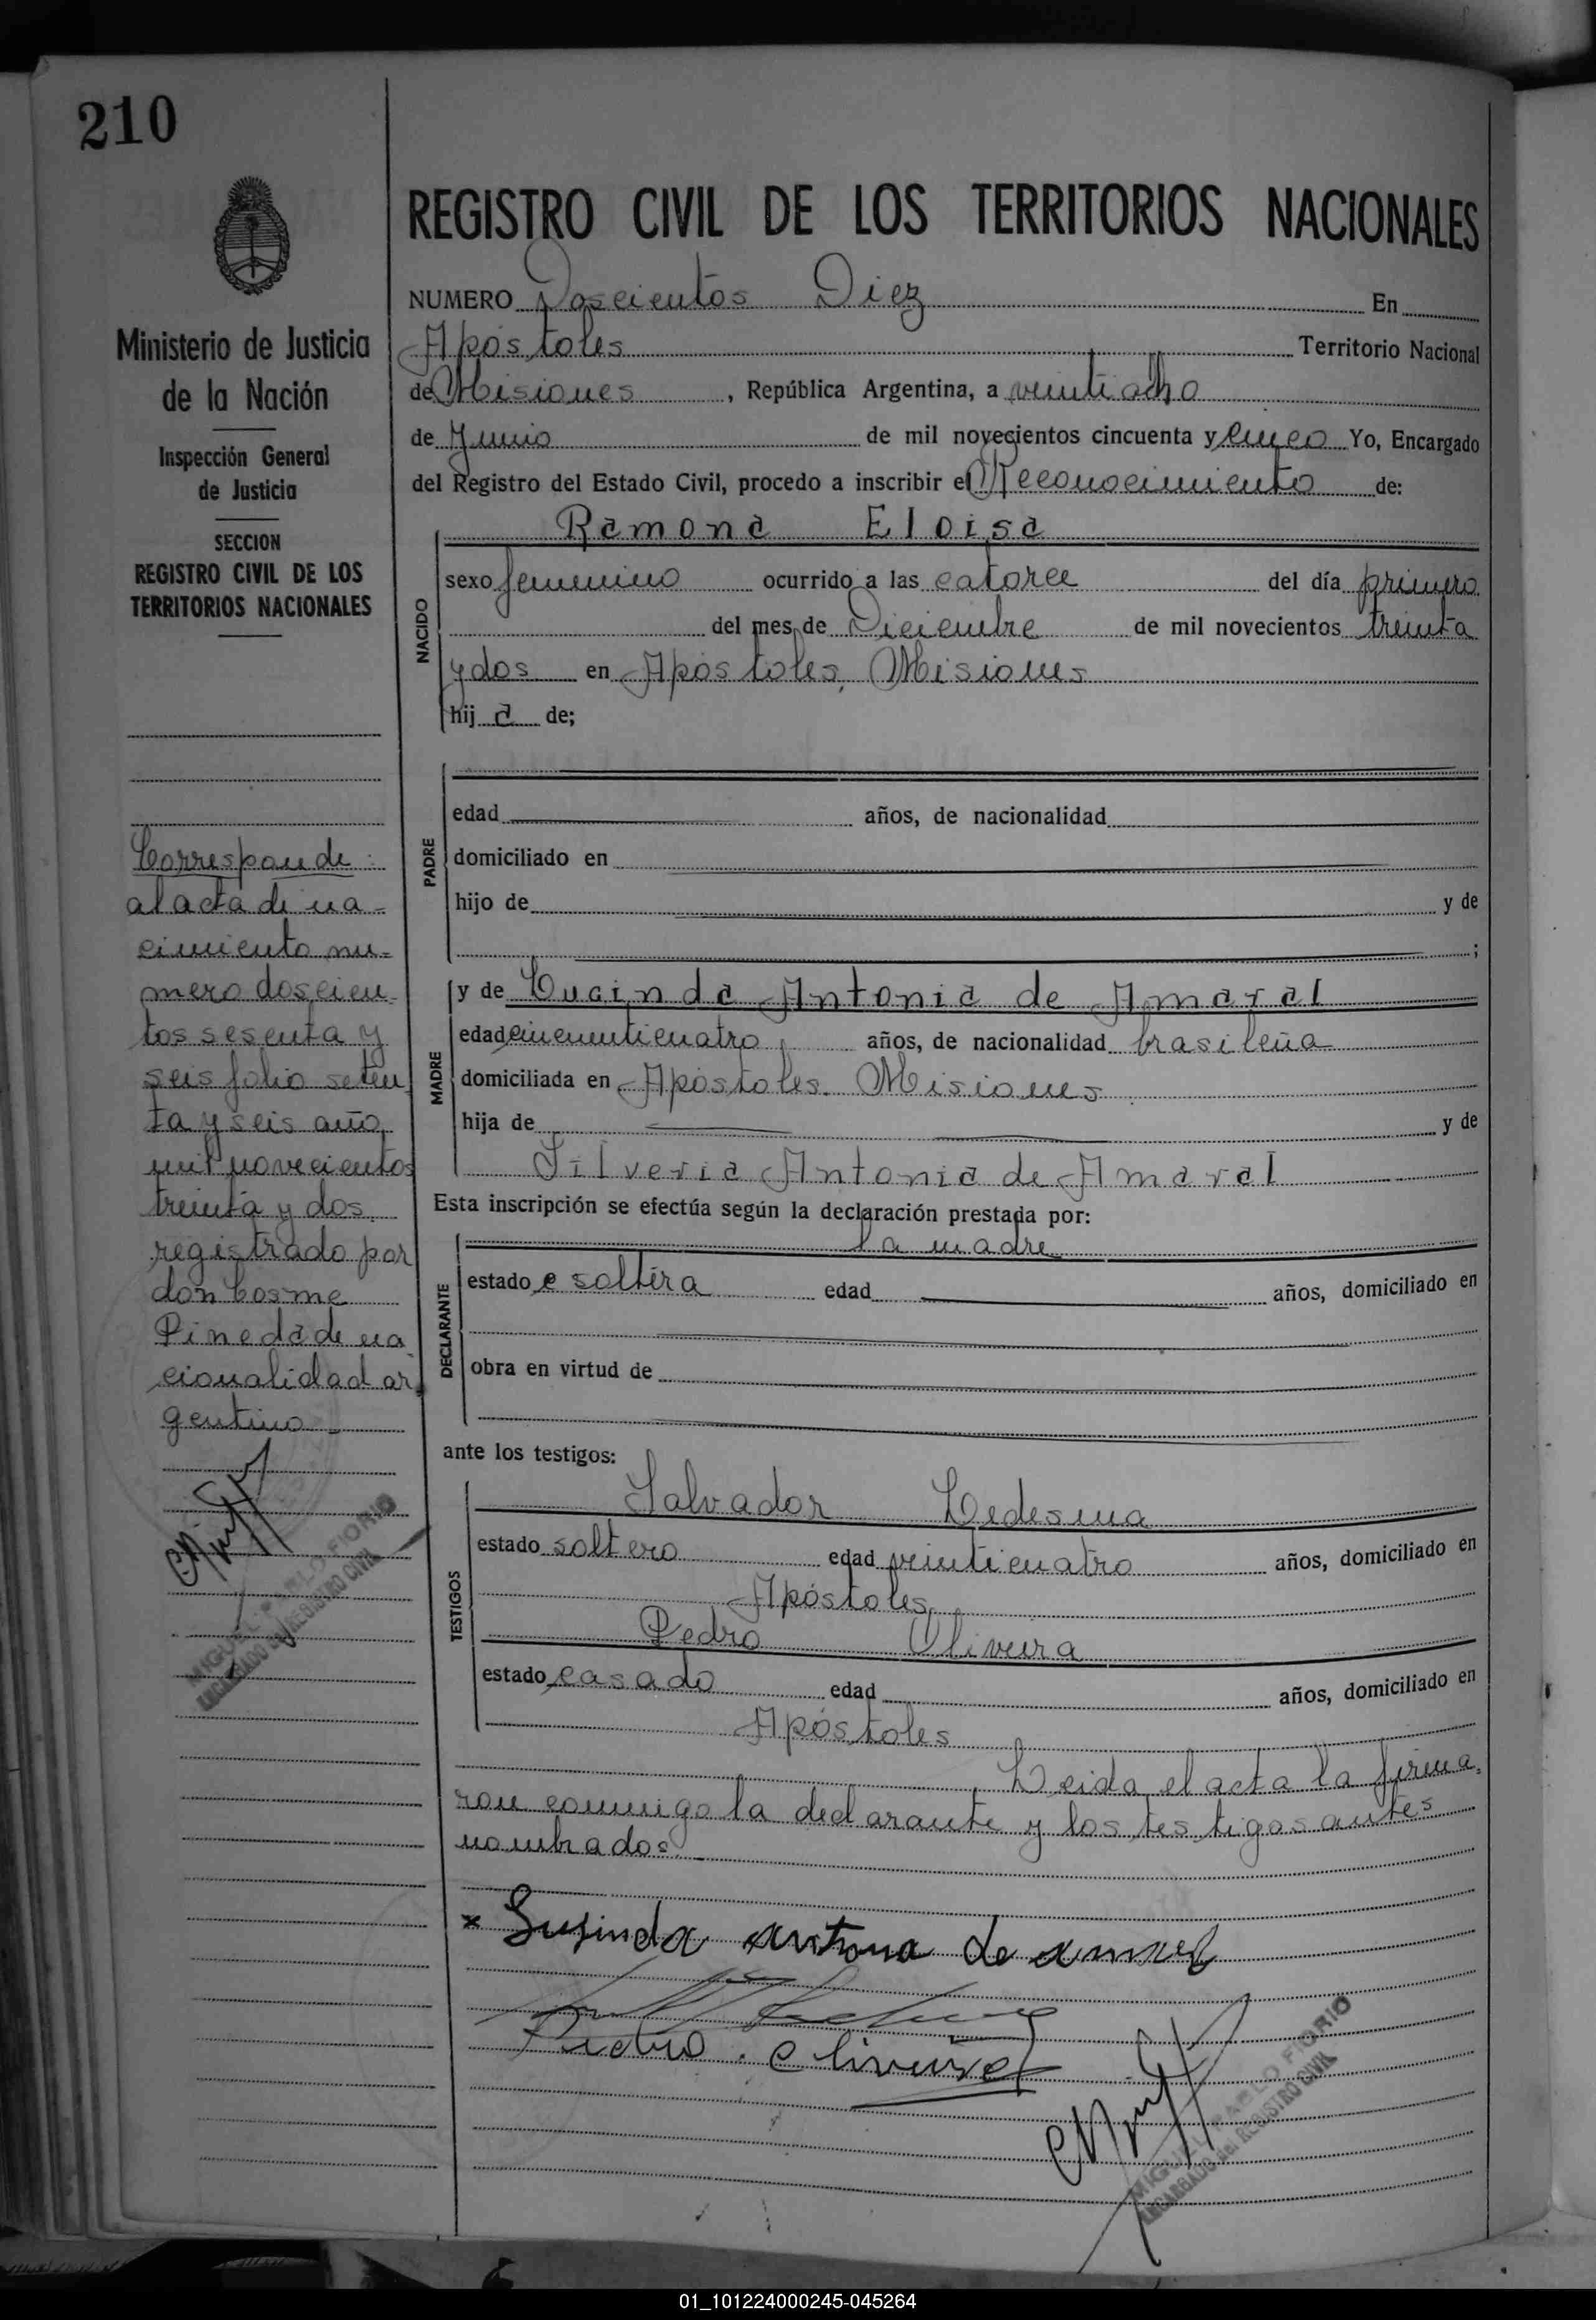 210
Ministerio de Justicia
de la Nación
Inspección General
de Justicia
SECCION
REGISTRO CIVIL DE LOS
TERRITORIOS NACIONALES
Corresponde:
al acta de na-
cimiento nu-
mero doscien-
tos sesenta y
seis folio seten
ta y seis año
mil novecientos
treinta y dos
registrado por
don Cosme
Pineda de na
cionalidad ar
gentino
MIGUEL PABLO FIORIO
ENCARGADO del REGISTRO CIVIL
REGISTRO CIVIL DE LOS TERRITORIOS NACIONALES
NUMERO Doscientos Diez En
Apóstoles Territorio Nacional
de Misiones, República Argentina, a veintiocho
de Junio de mil novecientos cincuenta y cinco Yo, Encargado
del Registro del Estado Civil, procedo a inscribir el Reconocimiento de:
Ramona Eloisa
NACIDO
sexo femenino ocurrido a las catorce del día primero
del mes de Diciembre de mil novecientos treinta
y dos en Apóstoles, Misiones
hij a de;
PADRE
edad años, de nacionalidad
domiciliado en
hijo de y de
;
MADRE
y de Lucinda Antonia de Amaral
edad cincuenticuatro años, de nacionalidad brasileña
domiciliada en Apóstoles. Misiones
hija de y de
Silveria Antonia de Amaral
Esta inscripción se efectúa según la declaración prestada por:
la madre
DECLARANTE
estado e soltera edad años, domiciliado en
obra en virtud de
ante los testigos:
TESTIGOS
Salvador Ledesma
estado soltero edad veinticuatro años, domiciliado en
Apóstoles
Pedro Oliveira
estado casado edad años, domiciliado en
Apóstoles
Leida el acta la firma.
ron conmigo la declarante y los testigos antes
nombrados.
x Susinda antona de
Pedro
MIGUEL PABLO FIORIO
ENCARGADO del REGISTRO CIVIL
01_101224000245-045264